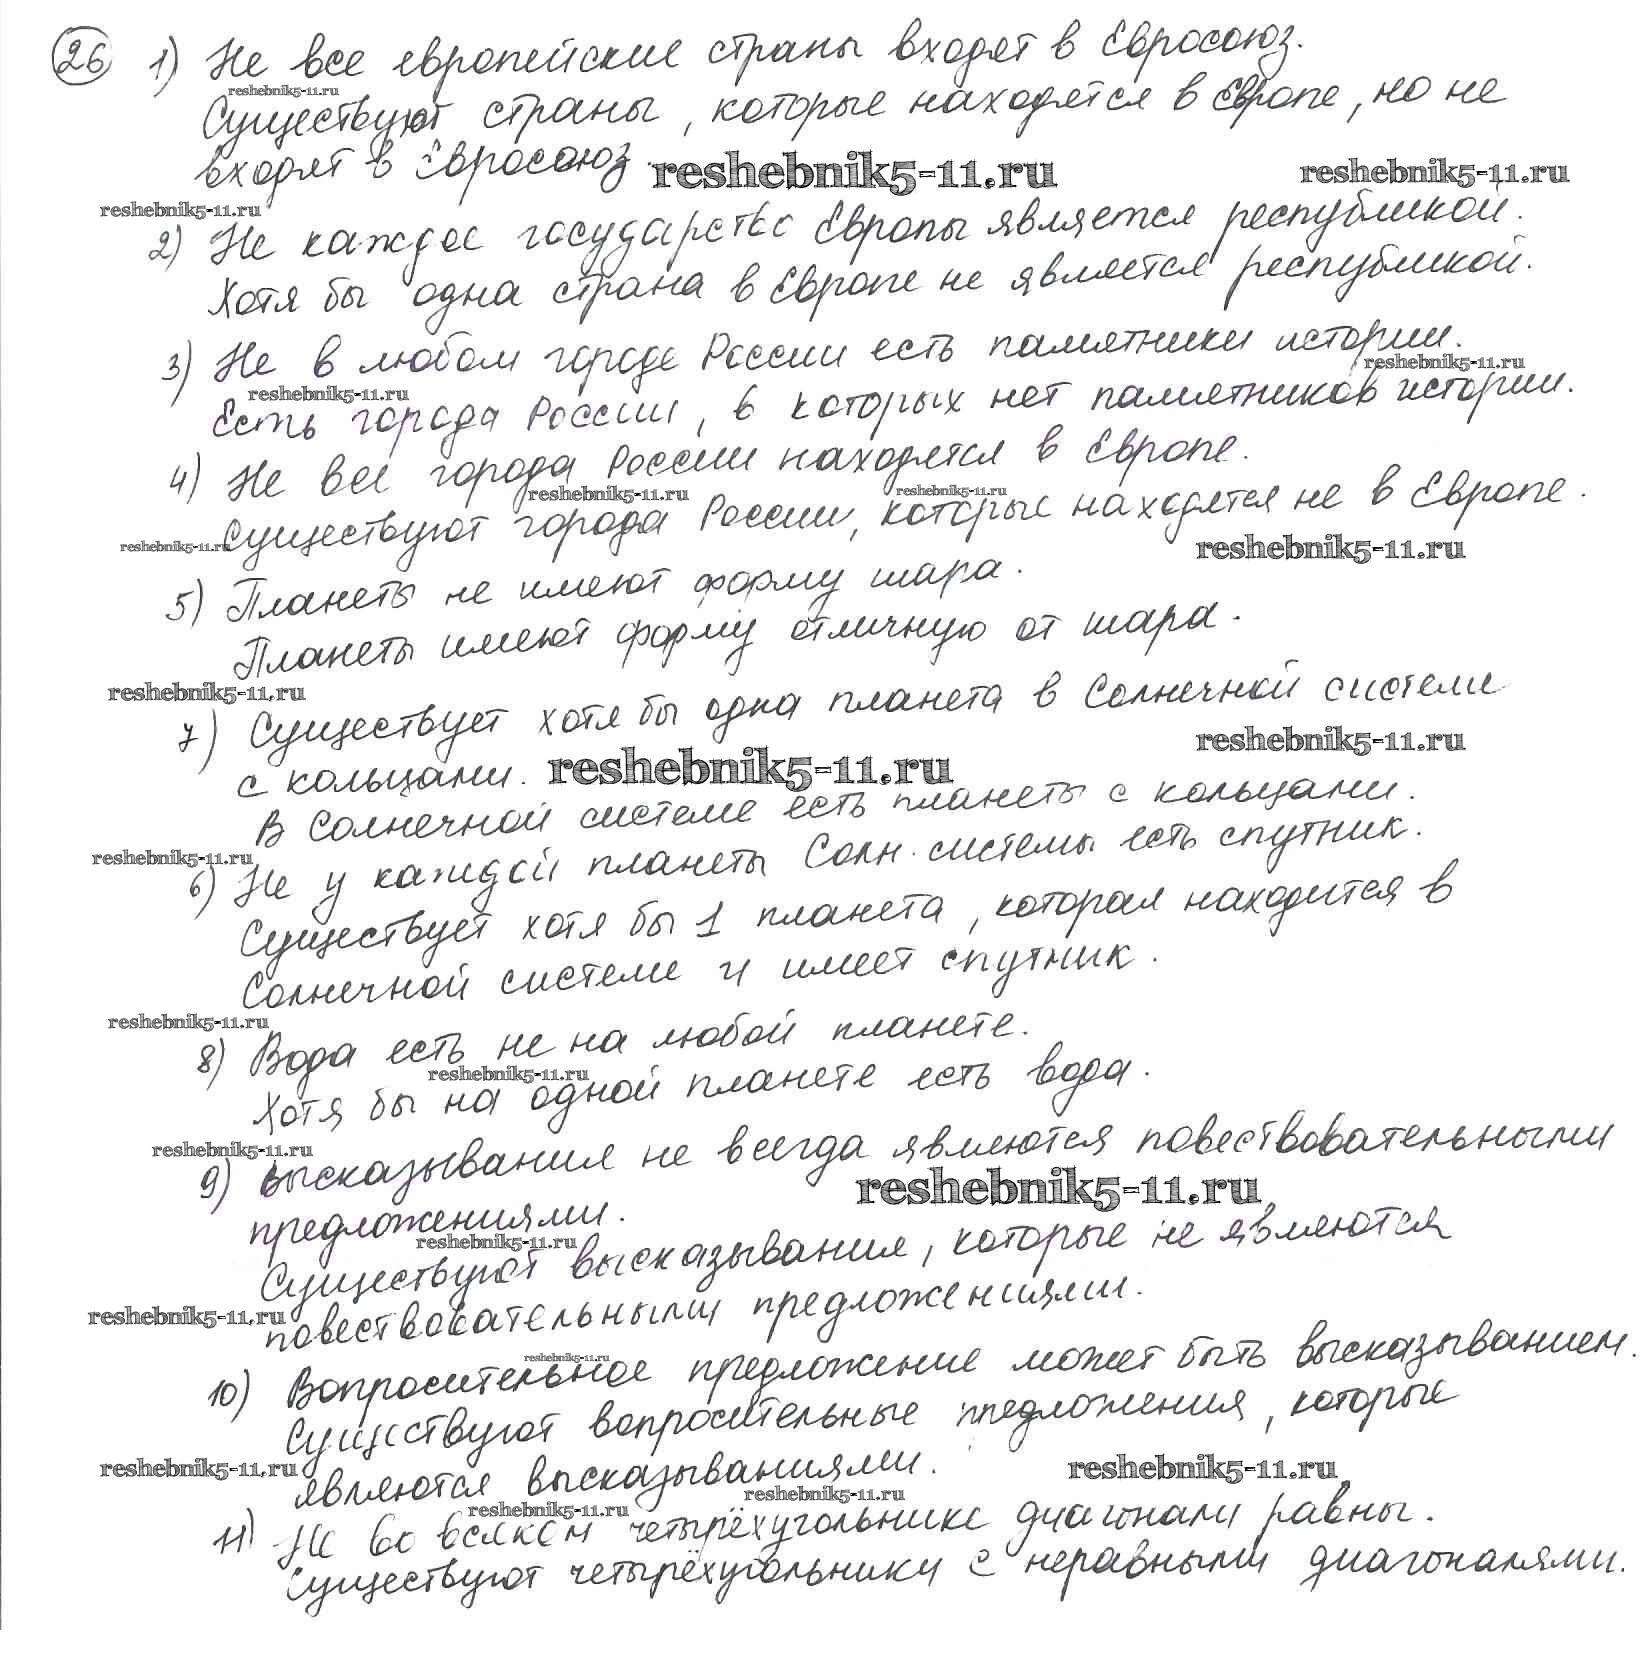 26 1) Не все европейские страны входят в Евросоюз.
reshebnik5-11.ru
Существуют страны, которые находятся в Европе, но не
входят в Евросоюз.
reshebnik5-11.ru reshebnik5-11.ru
reshebnik5-11.ru
2) Не каждое государство Европы является республикой.
Хотя бы одна страна в Европе не является республикой.
3) Не в любом городе России есть памятники истории.
reshebnik5-11.ru reshebnik5-11.ru
Есть города России, в которых нет памятников истории.
4) Не все города России находятся в Европе.
reshebnik5-11.ru reshebnik5-11.ru
Существуют города России, которые находятся не в Европе.
reshebnik5-11.ru reshebnik5-11.ru
5) Планеты не имеют форму шара.
Планеты имеют форму отличную от шара.
reshebnik5-11.ru
7) Существует хотя бы одна планета в Солнечной системе
reshebnik5-11.ru
с кольцами. reshebnik5-11.ru
В Солнечной системе есть планеты с кольцами.
reshebnik5-11.ru
6) Не у каждой планеты Солн. системы есть спутник.
Существует хотя бы 1 планета, которая находится в
Солнечной системе и имеет спутник.
reshebnik5-11.ru
8) Вода есть не на любой планете.
reshebnik5-11.ru
Хотя бы на одной планете есть вода.
reshebnik5-11.ru
9) высказывания не всегда являются повествовательными
reshebnik5-11.ru
предложениями.
reshebnik5-11.ru
Существуют высказывания, которые не являются
reshebnik5-11.ru
повествовательными предложениями.
reshebnik5-11.ru
10) Вопросительное предложение может быть высказыванием.
Существуют вопросительные предложения, которые
reshebnik5-11.ru reshebnik5-11.ru
являются высказываниями.
reshebnik5-11.ru reshebnik5-11.ru
11) Не во всяком четырёхугольнике диагонали равны.
Существуют четырёхугольники с неравными диагоналями.